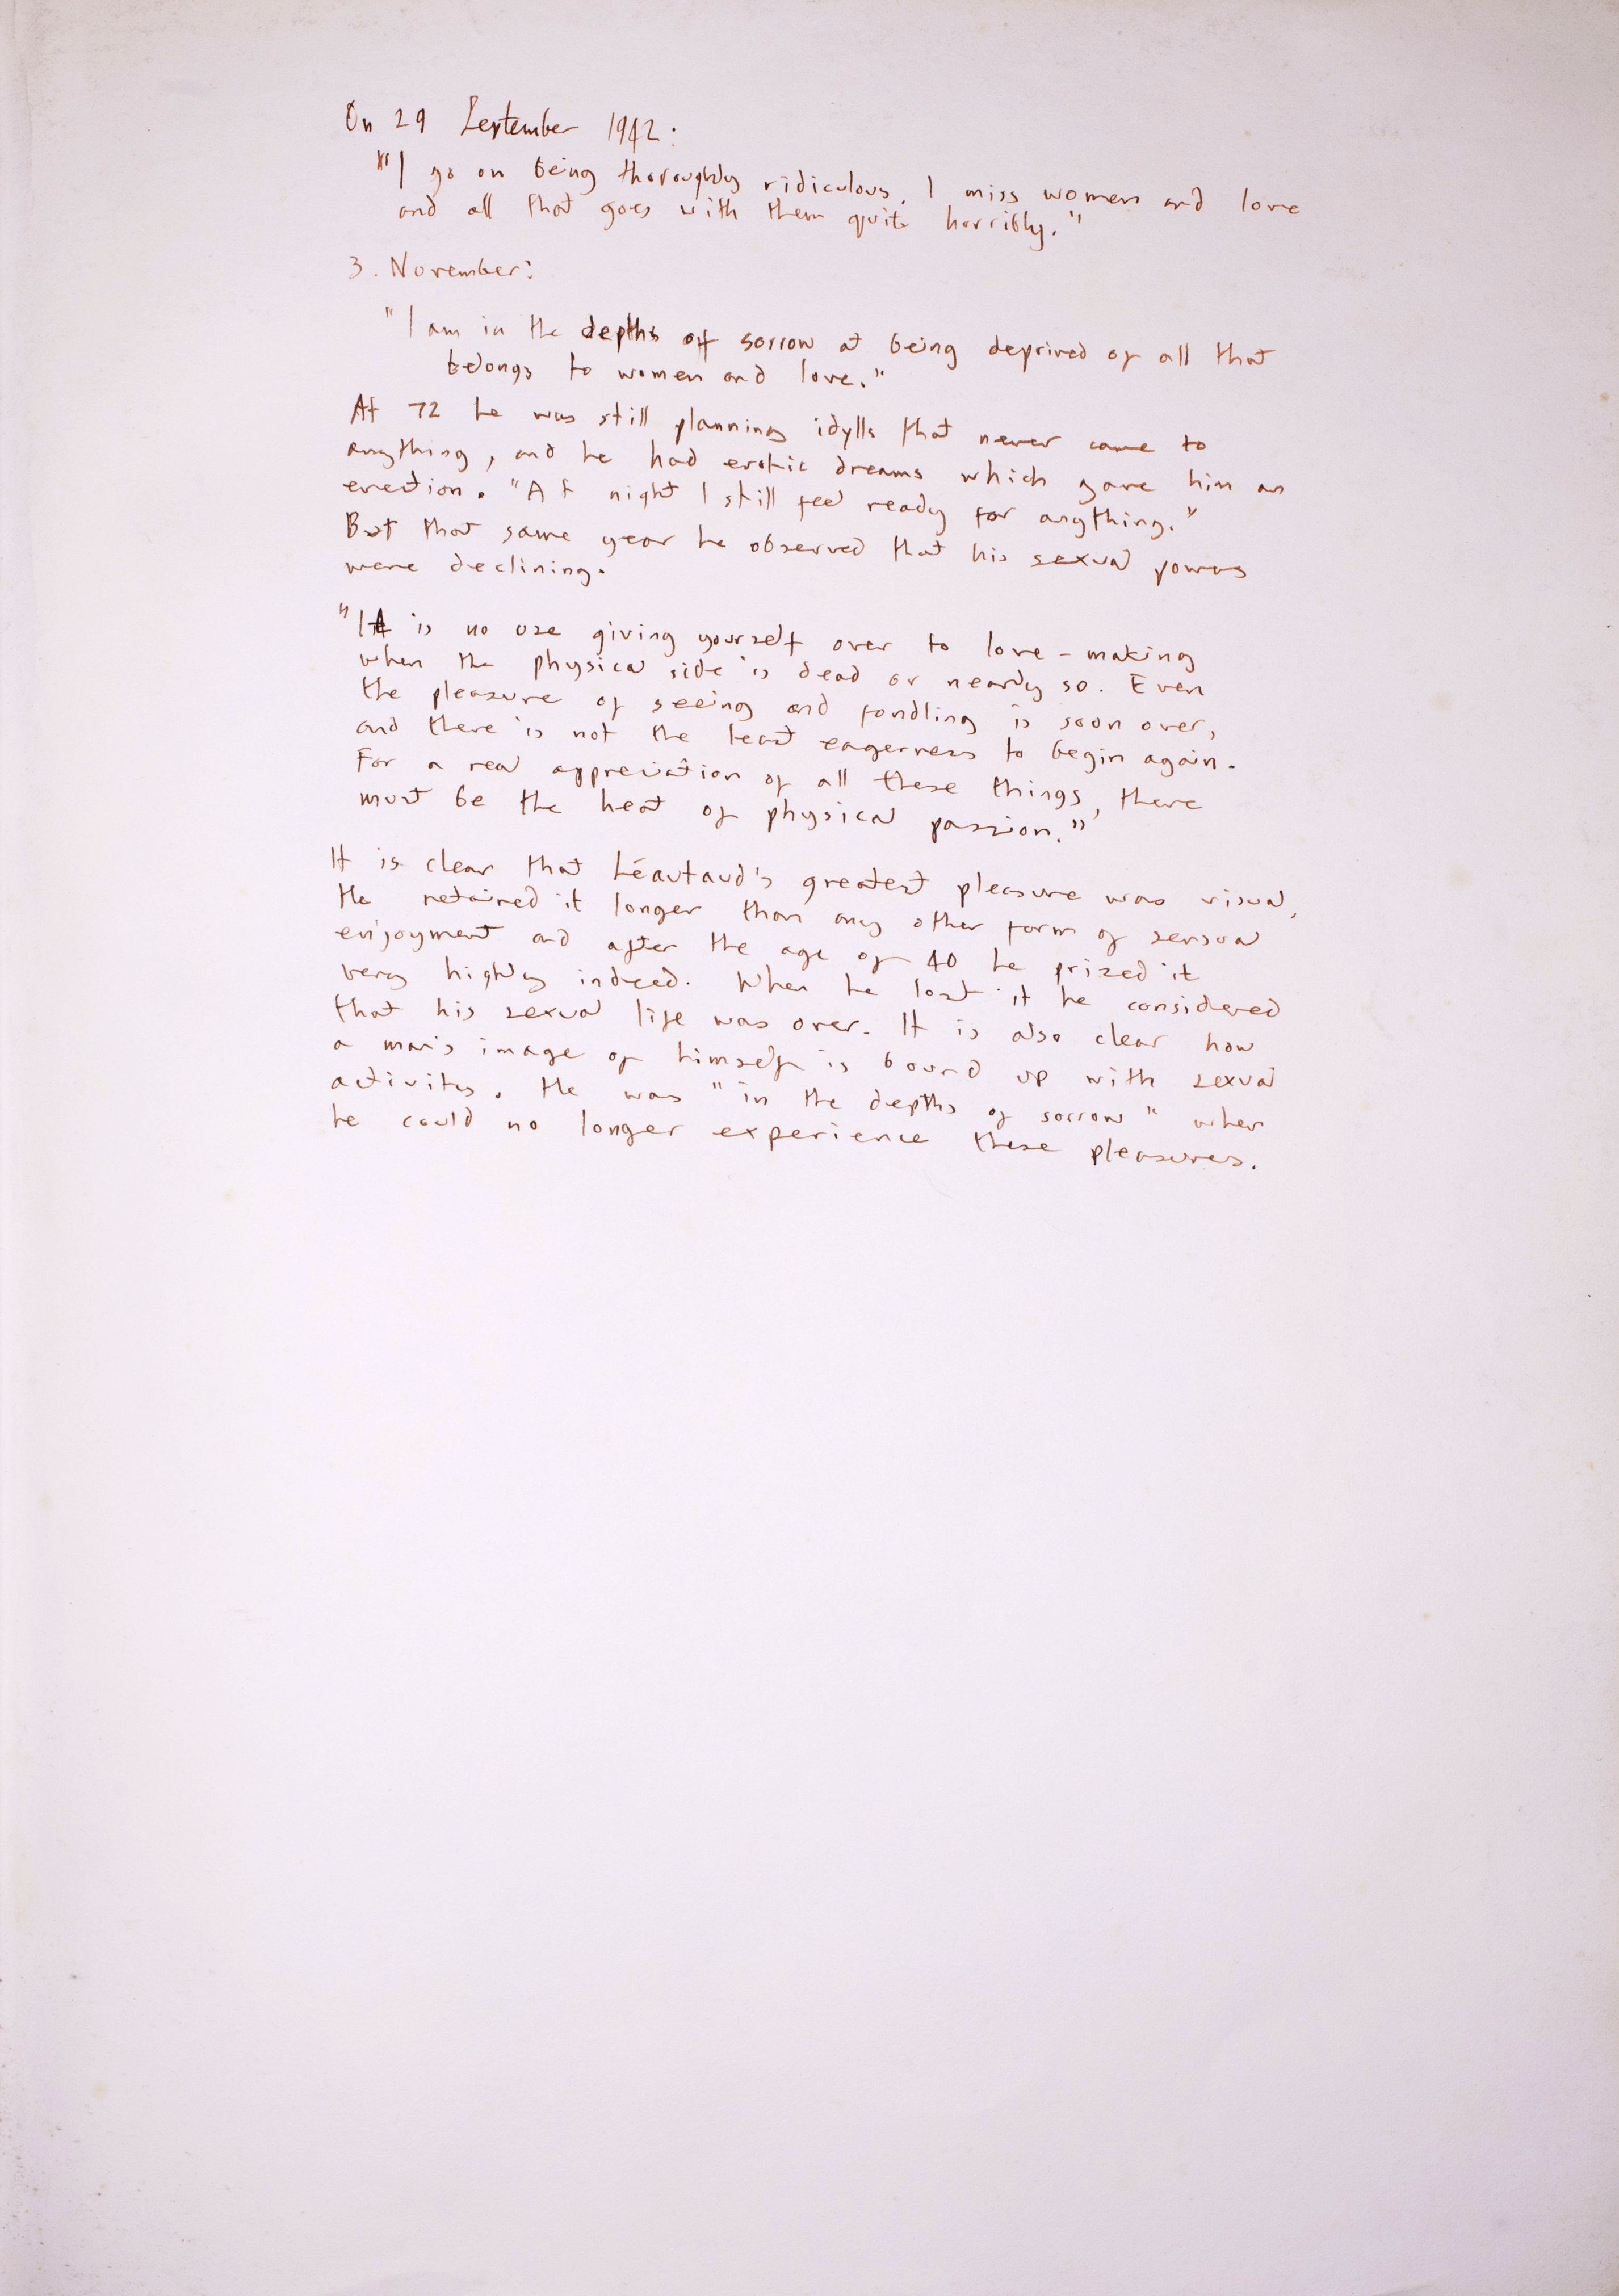 On 29 September 1942:
"I go on being thoroughly ridiculous. I miss women and love
and all that goes with them quite horribly."
3. November:
"I am in the depths of sorrow at being deprived of all that
belongs to women and love."
At 72 he was still planning idylls that never came to
anything, and he had erotic dreams which gave him an
erection. "At night I still feel ready for anything."
But that same year he observed that his sexual powers
were declining.
"It is no use giving yourself over to love-making
when the physical side is dead or nearly so. Even
the pleasure of seeing and fondling is soon over,
and there is not the least eagerness to begin again.
For a real appreciation of all these things, there
must be the heat of physical passion."
It is clear that Léautaud's greatest pleasure was visual.
He retained it longer than any other form of sensual
enjoyment and after the age of 40 he prized it
very highly indeed. When he lost it he considered
that his sexual life was over. It is also clear how
a man's image of himself is bound up with sexual
activity. He was "in the depths of sorrow" when
he could no longer experience these pleasures.